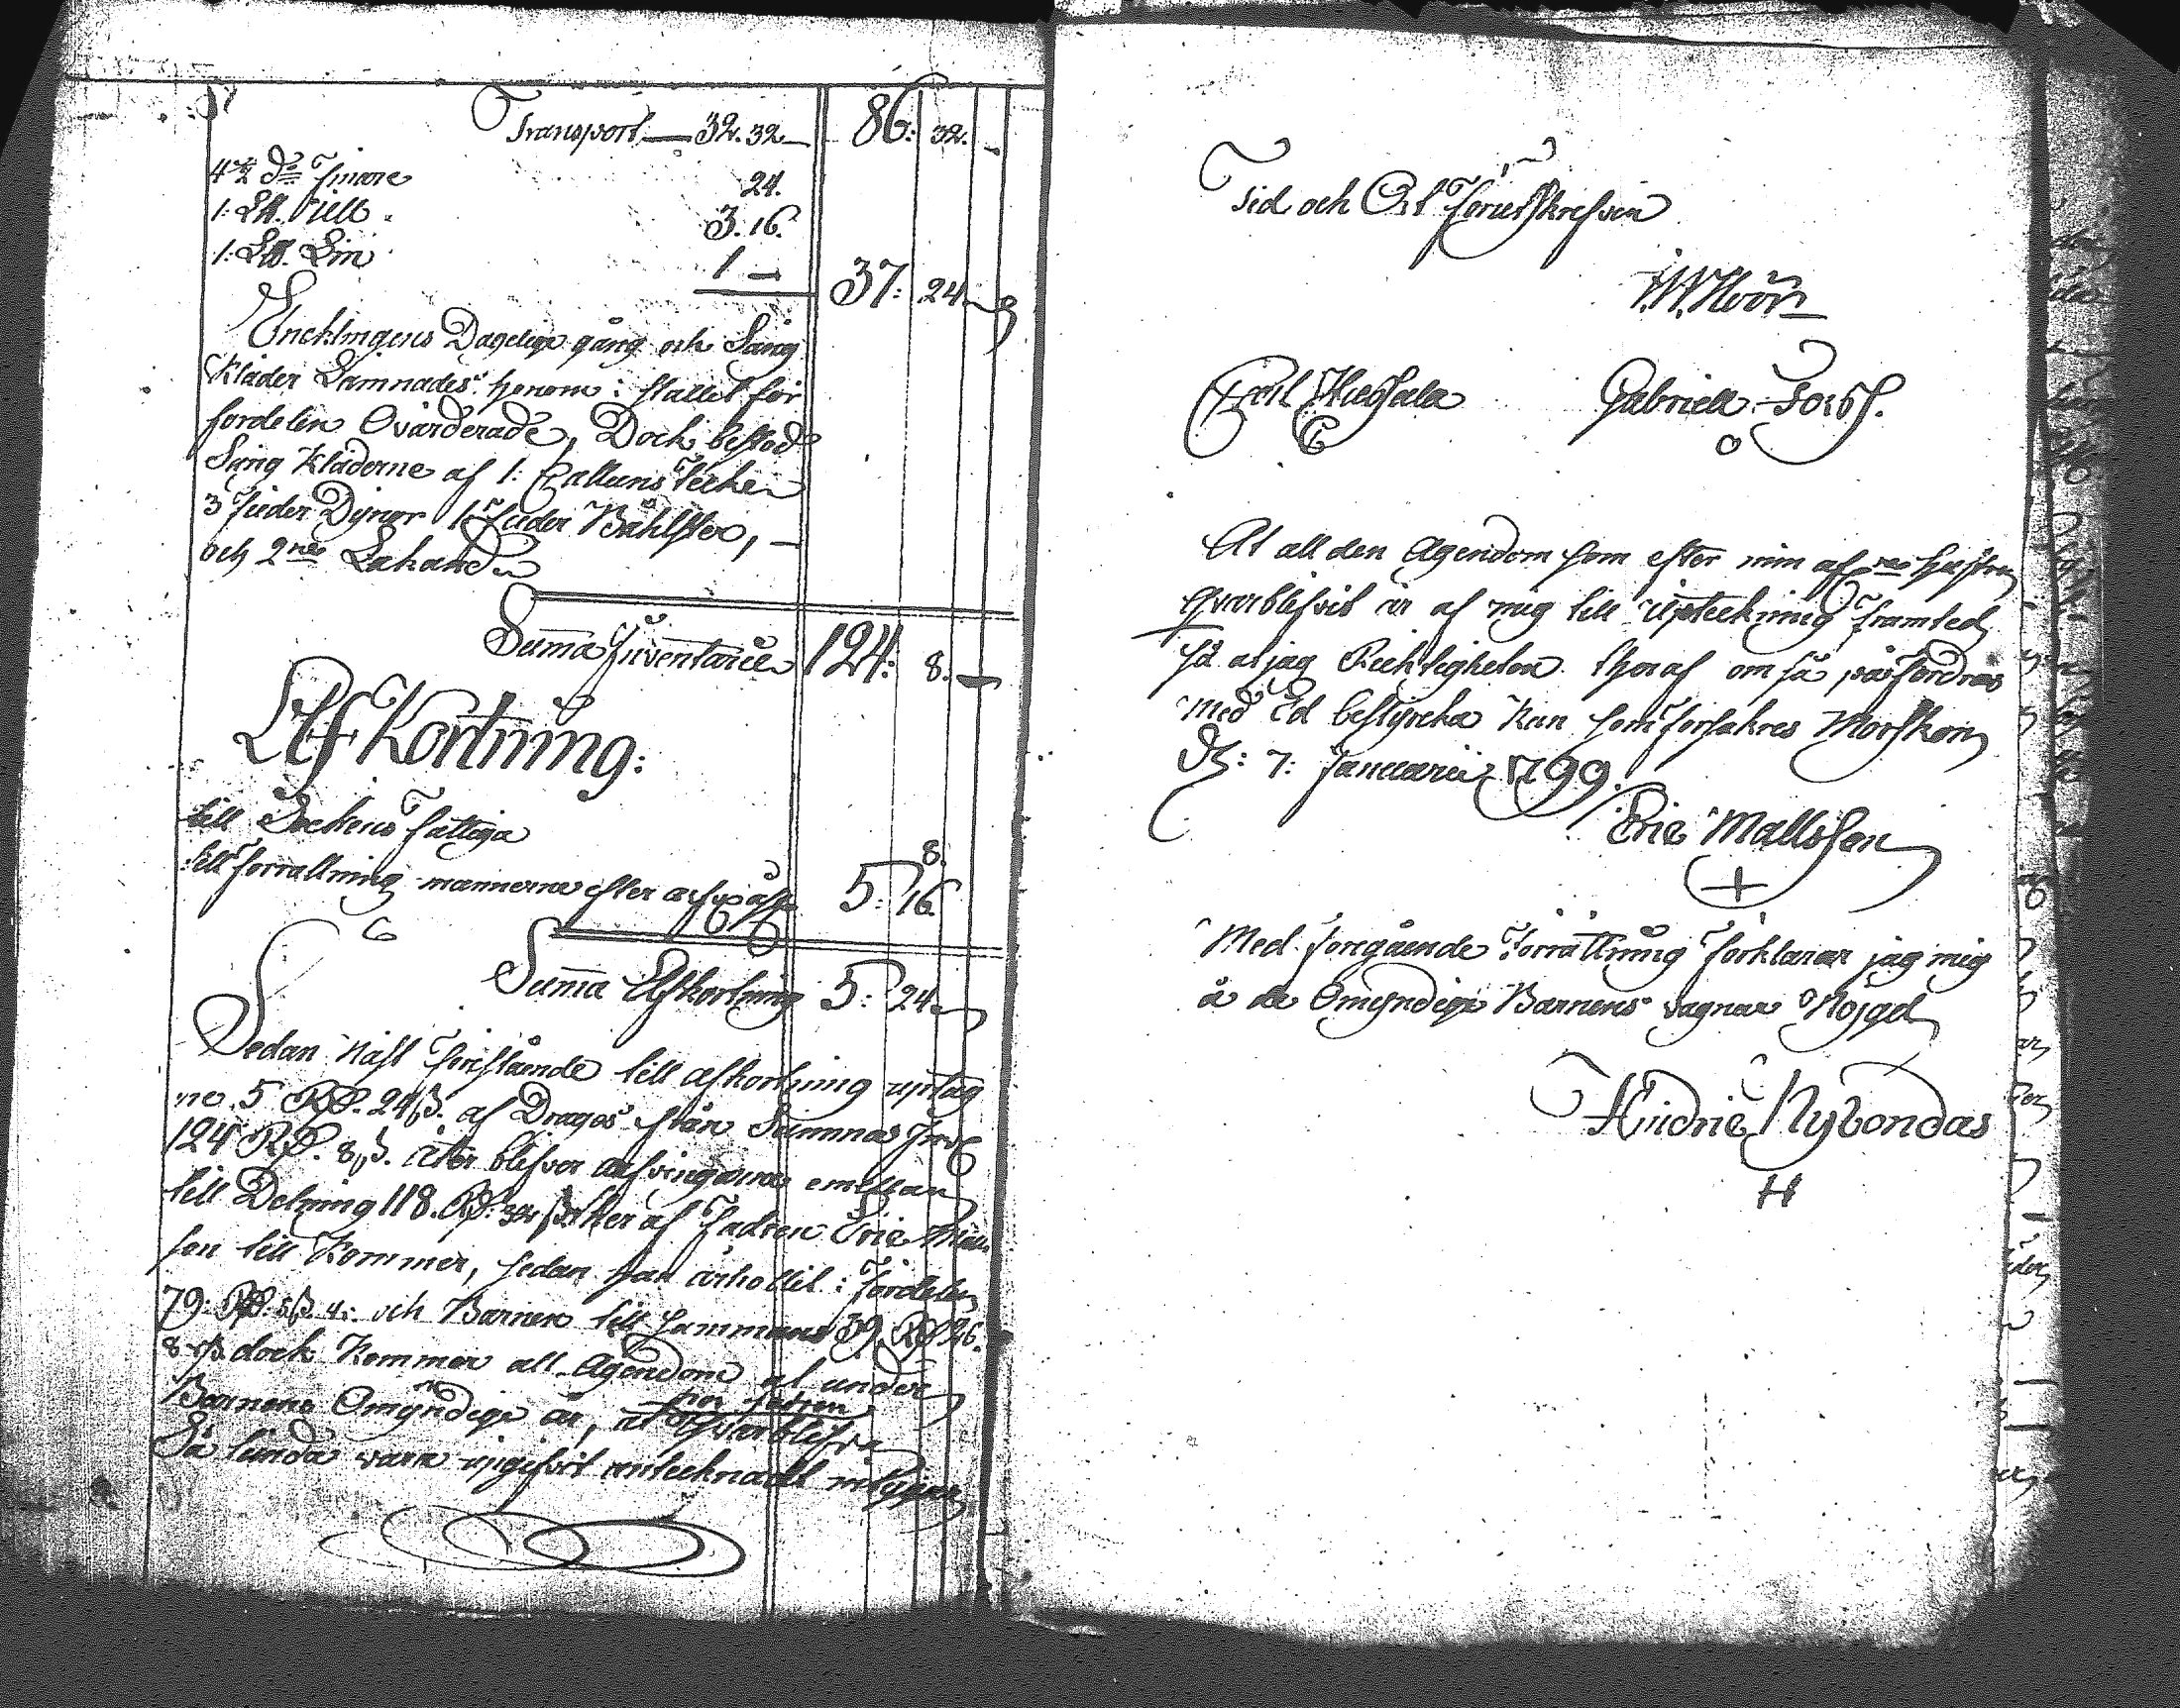 Transport — 32. 32 — 86: 32. —
4 st d:o finare 24.
1: L℔. Ull 3. 16.
1: L℔. Lin 1 — 37: 24 —
Encklingens Dagelige gång och Säng
Kläder Lämnades honom i stället för
fördelen Ovärderade, Dock bestod
Säng Kläderne af 1: Täcke
3 fieder Dynor 1 fieder Båhlster, —
och 2:ne Lakand
Summa Inventarie 124: 8. —
Afkortning:
till Sockens fattiga 8.
till förrättning mannerna efter 5: 16.
Summa Afkortning 5: 24.
Sedan näst föreståände till afkortning uptag
ne 5 Rd. 24 ß. af Drages från Summas
124 Rd. 8 ß. åter blifver arfvingarna emillan
till Delning 118. Rd: 32 ß. her af Fadren Eric
son till Kommer, sedan han ärhollit i fördelen
79: Rd: 5 ß. 4: och Barnen till sammans 39. Rd 26.
8 ß dock Kommer all Ägendom at under
Barnens Omyndige år, at hos fadren qvarblifva
Så lunda vara upgifvit antecknadt
Tid och Ort förutskrefven
Gabriel
At all den Ägendom som efter min afl:ne hustru
qvarblifvit är af mig till Upteckning framted
så at jag Ricktigheten theraf om så påfordras
med Ed bestyrcka Kan som försäkres
D: 7: Januarii 1799.
Eric Mattsson
Med föregående förrättning förklarar jag mig
å de Omyndige Barnens vagnar Nöjgd
Hindric Nybondas
H